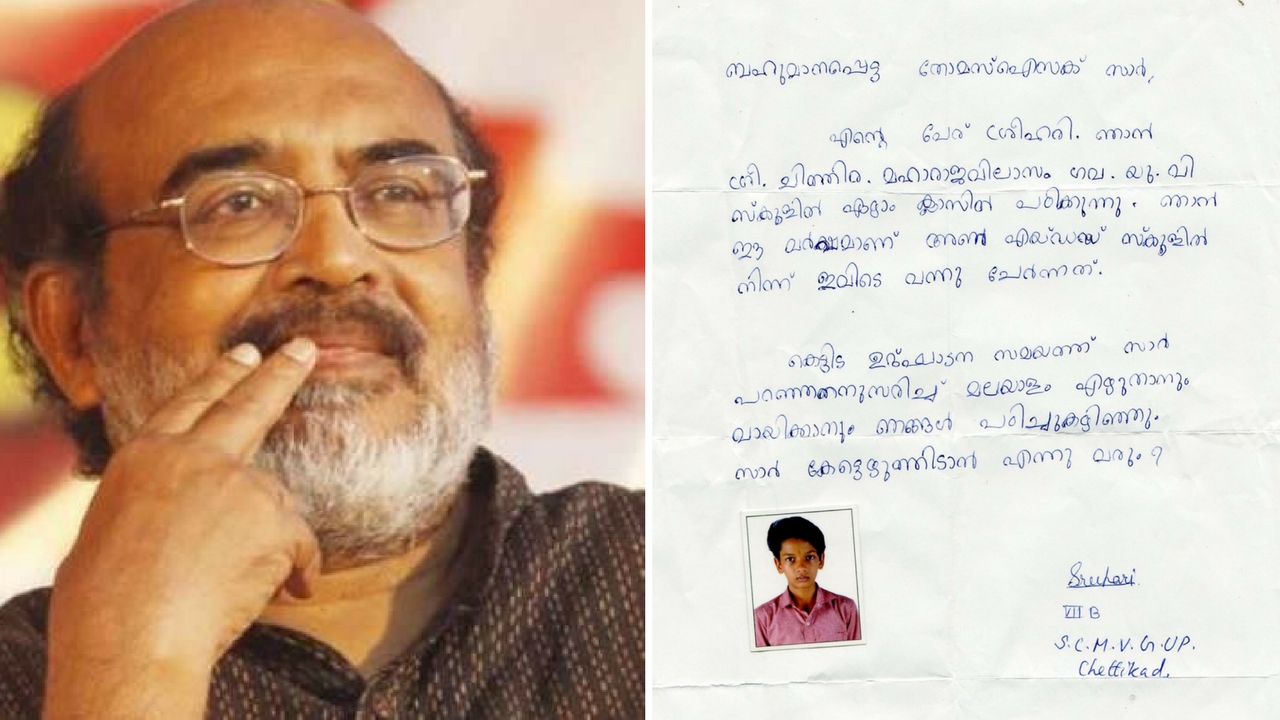 ബഹുമാനപ്പെട്ട തോമസ്ഐസക് സാർ,
എന്റെ പേര് ശ്രീഹരി. ഞാൻ
ശ്രീ. ചിത്തിര. മഹാരാജവിലാസം ഗവ. യു. പി
സ്കൂളിൽ ഏഴാം ക്ലാസിൽ പഠിക്കുന്നു. ഞാൻ
ഈ വർഷമാണ് അൺ എയ്ഡഡ് സ്കൂളിൽ
നിന്ന് ഇവിടെ വന്നു ചേർന്നത്.
കെട്ടിട ഉദ്ഘാടന സമയത്ത് സാർ
പറഞ്ഞതനുസരിച്ച് മലയാളം എഴുതാനും
വായിക്കാനും ഞങ്ങൾ പഠിച്ചുകഴിഞ്ഞു.
സാർ കേട്ടെഴുത്തിടാൻ എന്നു വരും?
Sreehari.
VII B
S.C.M.V.G.UP.
Chettikad.